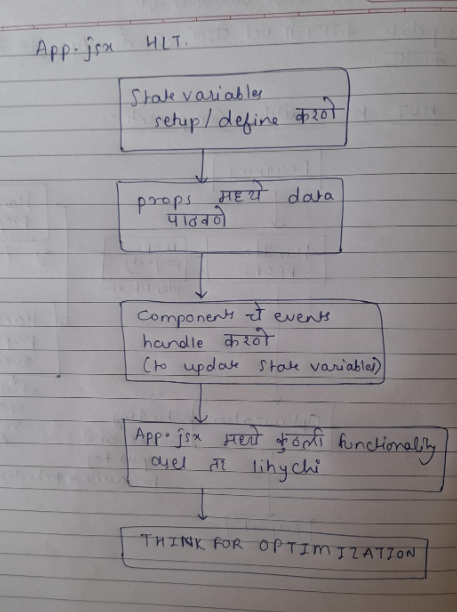 App.jsx HLT.
State variables
setup/define करणे
props मध्ये data
पाठवणे
Components चे events
handle करणे
(to update state variables)
App.jsx मध्ये कुठली functionality
असेल तर lihychi
THINK FOR OPTIMIZATION